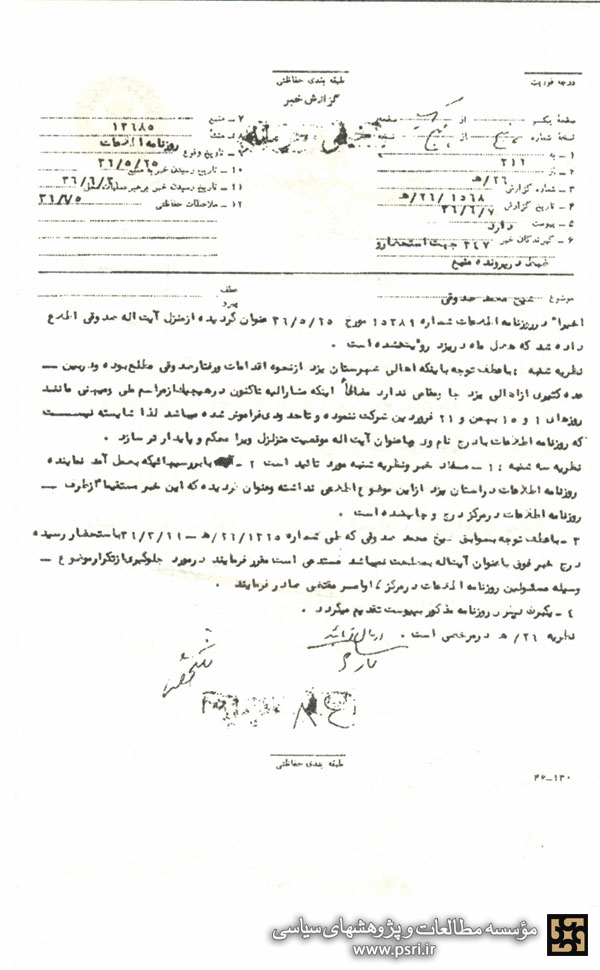 درجه فوریت
طبقه بندی حفاظتی
گزارش خبر
صفحه یک از یک صفحه
نسخه شماره پنج از پنج نسخه
خیلی محرمانه
۱ – به ۳۱۲
۲ – از ۲۶/ه
۳ – شماره گزارش ۱۵۶۸/۲۶ه
۴ – تاریخ گزارش ۳۶/۶/۷
۵ – پیوست دارد
۶ – گیرندگان خبر ۳۴۷ جهت استحضار و
ضبط در پرونده منبع
۷ – منبع ۱۲۶۸۵
۸ – منشاء روزنامه اطلاعات
۹ – تاریخ وقوع ۳۶/۵/۲۵
۱۰ – تاریخ رسیدن خبر به منبع
۱۱ – تاریخ رسیدن خبر به رهبر عملیات محل
۱۲ – ملاحظات حفاظتی
موضوع : شیخ محمد صدوقی
عطف
پیرو
اخیرا" در روزنامه اطلاعات شماره ۱۵۳۸۹ مورخ ۳۶/۵/۲۵ عنوان گردیده از منزل آیت اله صدوقی اطلاع
داده شد که هلال ماه در یزد رویت نشده است .
نظریه شنبه : باعطف توجه باینکه اهالی شهرستان یزد از نحوه اقدامات و رفتار صدوقی مطلع بوده و در بین –
عده کثیری از اهالی یزد جا و مقامی ندارد مضافاً اینکه مشارالیه تاکنون در هیچیک از مراسم ملی و میهنی مانند
روزهای ۶ و ۱۵ بهمن و ۲۱ فروردین شرکت ننموده و تاحدودی فراموش شده میباشد لذا شایسته نیست
که روزنامه اطلاعات با درج نام وی بعنوان آیت اله موقعیت متزلزل ویرا محکم و پایدارتر سازد .
نظریه سه شنبه : ۱ – مفاد خبر و نظریه شنبه مورد تائید است ۲ – با بررسیهائیکه بعمل آمد نماینده
روزنامه اطلاعات در استان یزد از این موضوع اطلاعی نداشته و عنوان گردیده که این خبر مستقیما از طرف –
روزنامه اطلاعات در مرکز درج و چاپ شده است .
۳ – باعطف توجه بسوابق شیخ محمد صدوقی که طی شماره ۱۲۱۵/۲۶ه – ۳۶/۲/۲۱ باستحضار رسیده
درج خبر فوق با عنوان آیت اله بمصلحت نمیباشد مستدعی است مقرر فرمایند در مورد جلوگیری از تکرار موضوع –
وسیله مسئولین روزنامه اطلاعات در مرکز اوامر مقتضی صادر فرمایند .
۴ – یکبرگ بریده روزنامه مذکور بپیوست تقدیم میگردد .
نظریه ۲۶/ه در مرخصی است .
طبقه بندی حفاظتی
۴۶–۱۳۰
مؤسسه مطالعات و پژوهشهای سیاسی
www.psri.ir